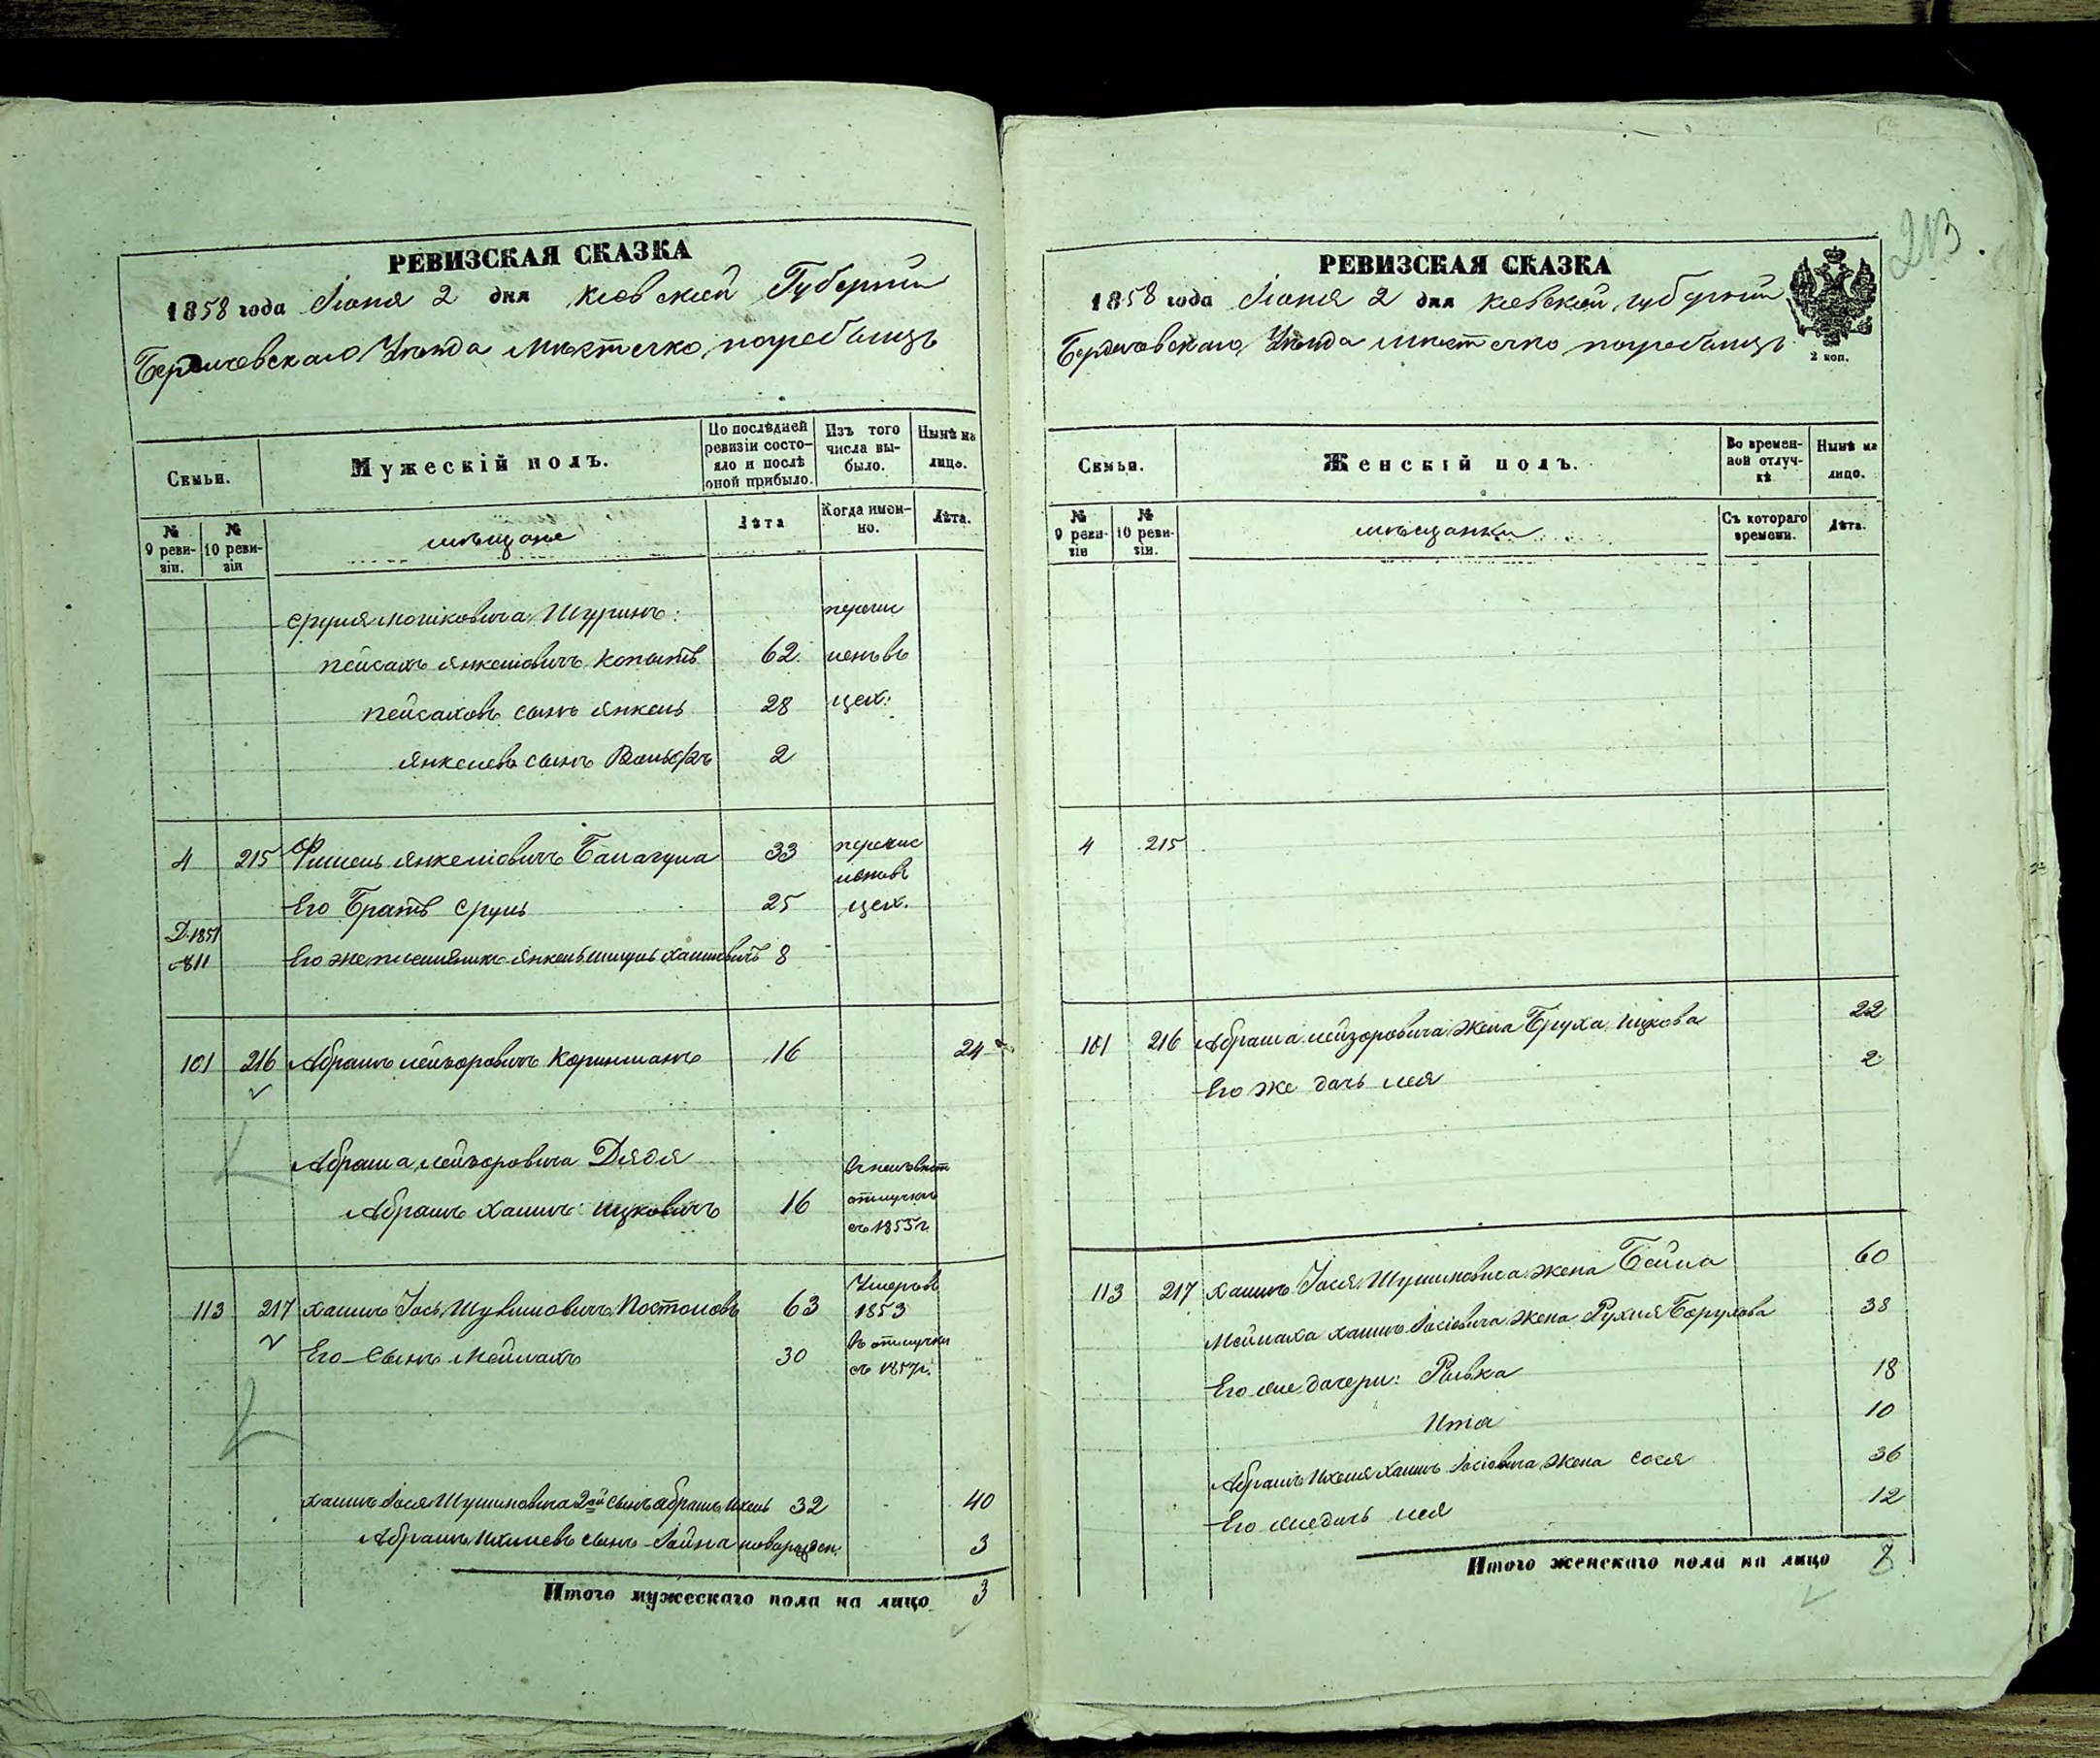 213
РЕВИЗСКАЯ СКАЗКА
1858 года Іюня 2 дня Кіевской Губерніи
Бердичевскаго Уѣзда Мѣстечко Погребищъ
Семьи.
Мужескій полъ.
По послѣдней ревизіи состояло и послѣ оной прибыло.
Изъ того числа выбыло.
Нынѣ на лицо.
№ 9 ревизіи.
№ 10 ревизіи
мѣщане
Лѣта
Когда именно.
Лѣта.
Сруля Мошковича Шуринъ: перечис
Пейсахъ Янкеліовичъ Копытъ 62 ленъ въ
Пейсаховъ сынъ Янкель 28 цех:
Янкелевъ сынъ Вольфъ 2
4 215 Фишель Янкеліовичъ Балагула 33 перечис
ленъ въ
Его Братъ Сруль 25 цех.
Д. 1851
№811 Его же племяникъ Янкель Шмуль Хаимовичъ 8
101 216 Абрамъ Лейзоровичъ Коринманъ 16 24
Абрама Лейзоровича Дядя в неизвѣст
Абрамъ Хаимъ Ицковичъ 16 отлучкѣ
съ 1853 г.
113 217 Хаимъ Іось Шулимовичъ Постоловъ 63 Умеръ въ 1853
Его Сынъ Меилахъ 30 въ отлучки
съ 1857 г.
Хаимъ Іося Шулимовича 2ой сынъ Абрамъ Ихель 32 40
Абрамъ Ихилевъ сынъ Іойна новорожден. 3
Итого мужескаго пола на лицо 3
РЕВИЗСКАЯ СКАЗКА
1858 года Іюня 2 дня Кіевской губерніи
Бердичевскаго Уѣзда Мѣстечко Погребищъ
2 коп.
Семьи.
Женскій полъ.
Во временной отлучкѣ
Нынѣ на лицо.
№ 9 ревизіи
№ 10 ревизіи.
мѣщанки
Съ котораго времени.
Лѣта.
4 215
101 216 Абрама Лейзоровича жена Бруха Ицкова 22
Его же дочь Лея 2
113 217 Хаимъ Іося Шулимовича жена Бейла 60
Меилаха Хаимъ Іосіовича жена Рухля Борухова 38
Его же дочери: Ривка 18
Ита 10
Абрамъ Ихеля Хаимъ Іосіовича жена Сося 36
Его же дочь Лея 12
Итого женскаго пола на лицо 8